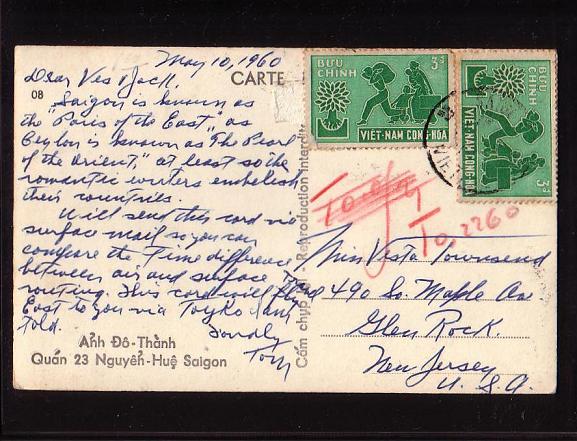 May 10, 1960
Dear Ves & Jack,
Saigon is known as
the "Paris of the East," as
Ceylon is known as "The Pearl
of the Orient," at least so the
romantic writers embelish
their countries.
Will send this card via
surface mail so you can
compare the Time difference
between air and surface
routing. This card will
East to you via Toyko I am
told.
Fondly
Tom
CARTE
08
Ảnh Đô-Thành
Quán 23 Nguyễn-Huệ Saigon
Cấm chụp - Reproduction interdite
BƯU CHÍNH
3đ
VIỆT-NAM CỘNG-HÒA
BƯU CHÍNH
3đ
VIỆT-NAM CỘNG-HÒA
T0,2260
Miss Vesta Townsend
490 So. Maple Ave
Glen Rock.
New Jersey
U. S. A.